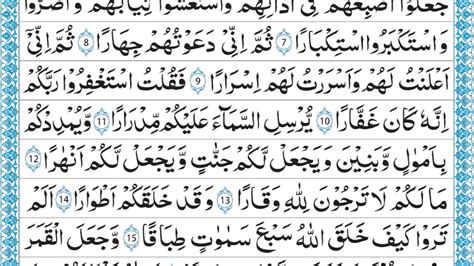 جَعَلُوٓا اَصَابِعَهُمْ فِىٓ اٰذَانِهِمْ وَاسْتَغْشَوْا ثِيَابَهُمْ وَاَصَرُّوْا
وَاسْتَكْبَرُوا اسْتِكْبَارًا ﴿7﴾ ثُمَّ اِنِّىْ دَعَوْتُهُمْ جِهَارًا ﴿8﴾ ثُمَّ اِنِّىْٓ
اَعْلَنْتُ لَهُمْ وَاَسْرَرْتُ لَهُمْ اِسْرَارًا ﴿9﴾ فَقُلْتُ اسْتَغْفِرُوْا رَبَّكُمْ
اِنَّهٗ كَانَ غَفَّارًا ﴿10﴾ يُرْسِلِ السَّمَآءَ عَلَيْكُمْ مِّدْرَارًا ﴿11﴾ وَيُمْدِدْكُمْ
بِاَمْوَالٍ وَّبَنِيْنَ وَيَجْعَلْ لَّكُمْ جَنّٰتٍ وَّيَجْعَلْ لَّكُمْ اَنْهٰرًا ﴿12﴾
مَا لَكُمْ لَا تَرْجُوْنَ لِلّٰهِ وَقَارًا ﴿13﴾ وَقَدْ خَلَقَكُمْ اَطْوَارًا ﴿14﴾ اَلَمْ
تَرَوْا كَيْفَ خَلَقَ اللّٰهُ سَبْعَ سَمٰوٰتٍ طِبَاقًا ﴿15﴾ وَّجَعَلَ الْقَمَرَ